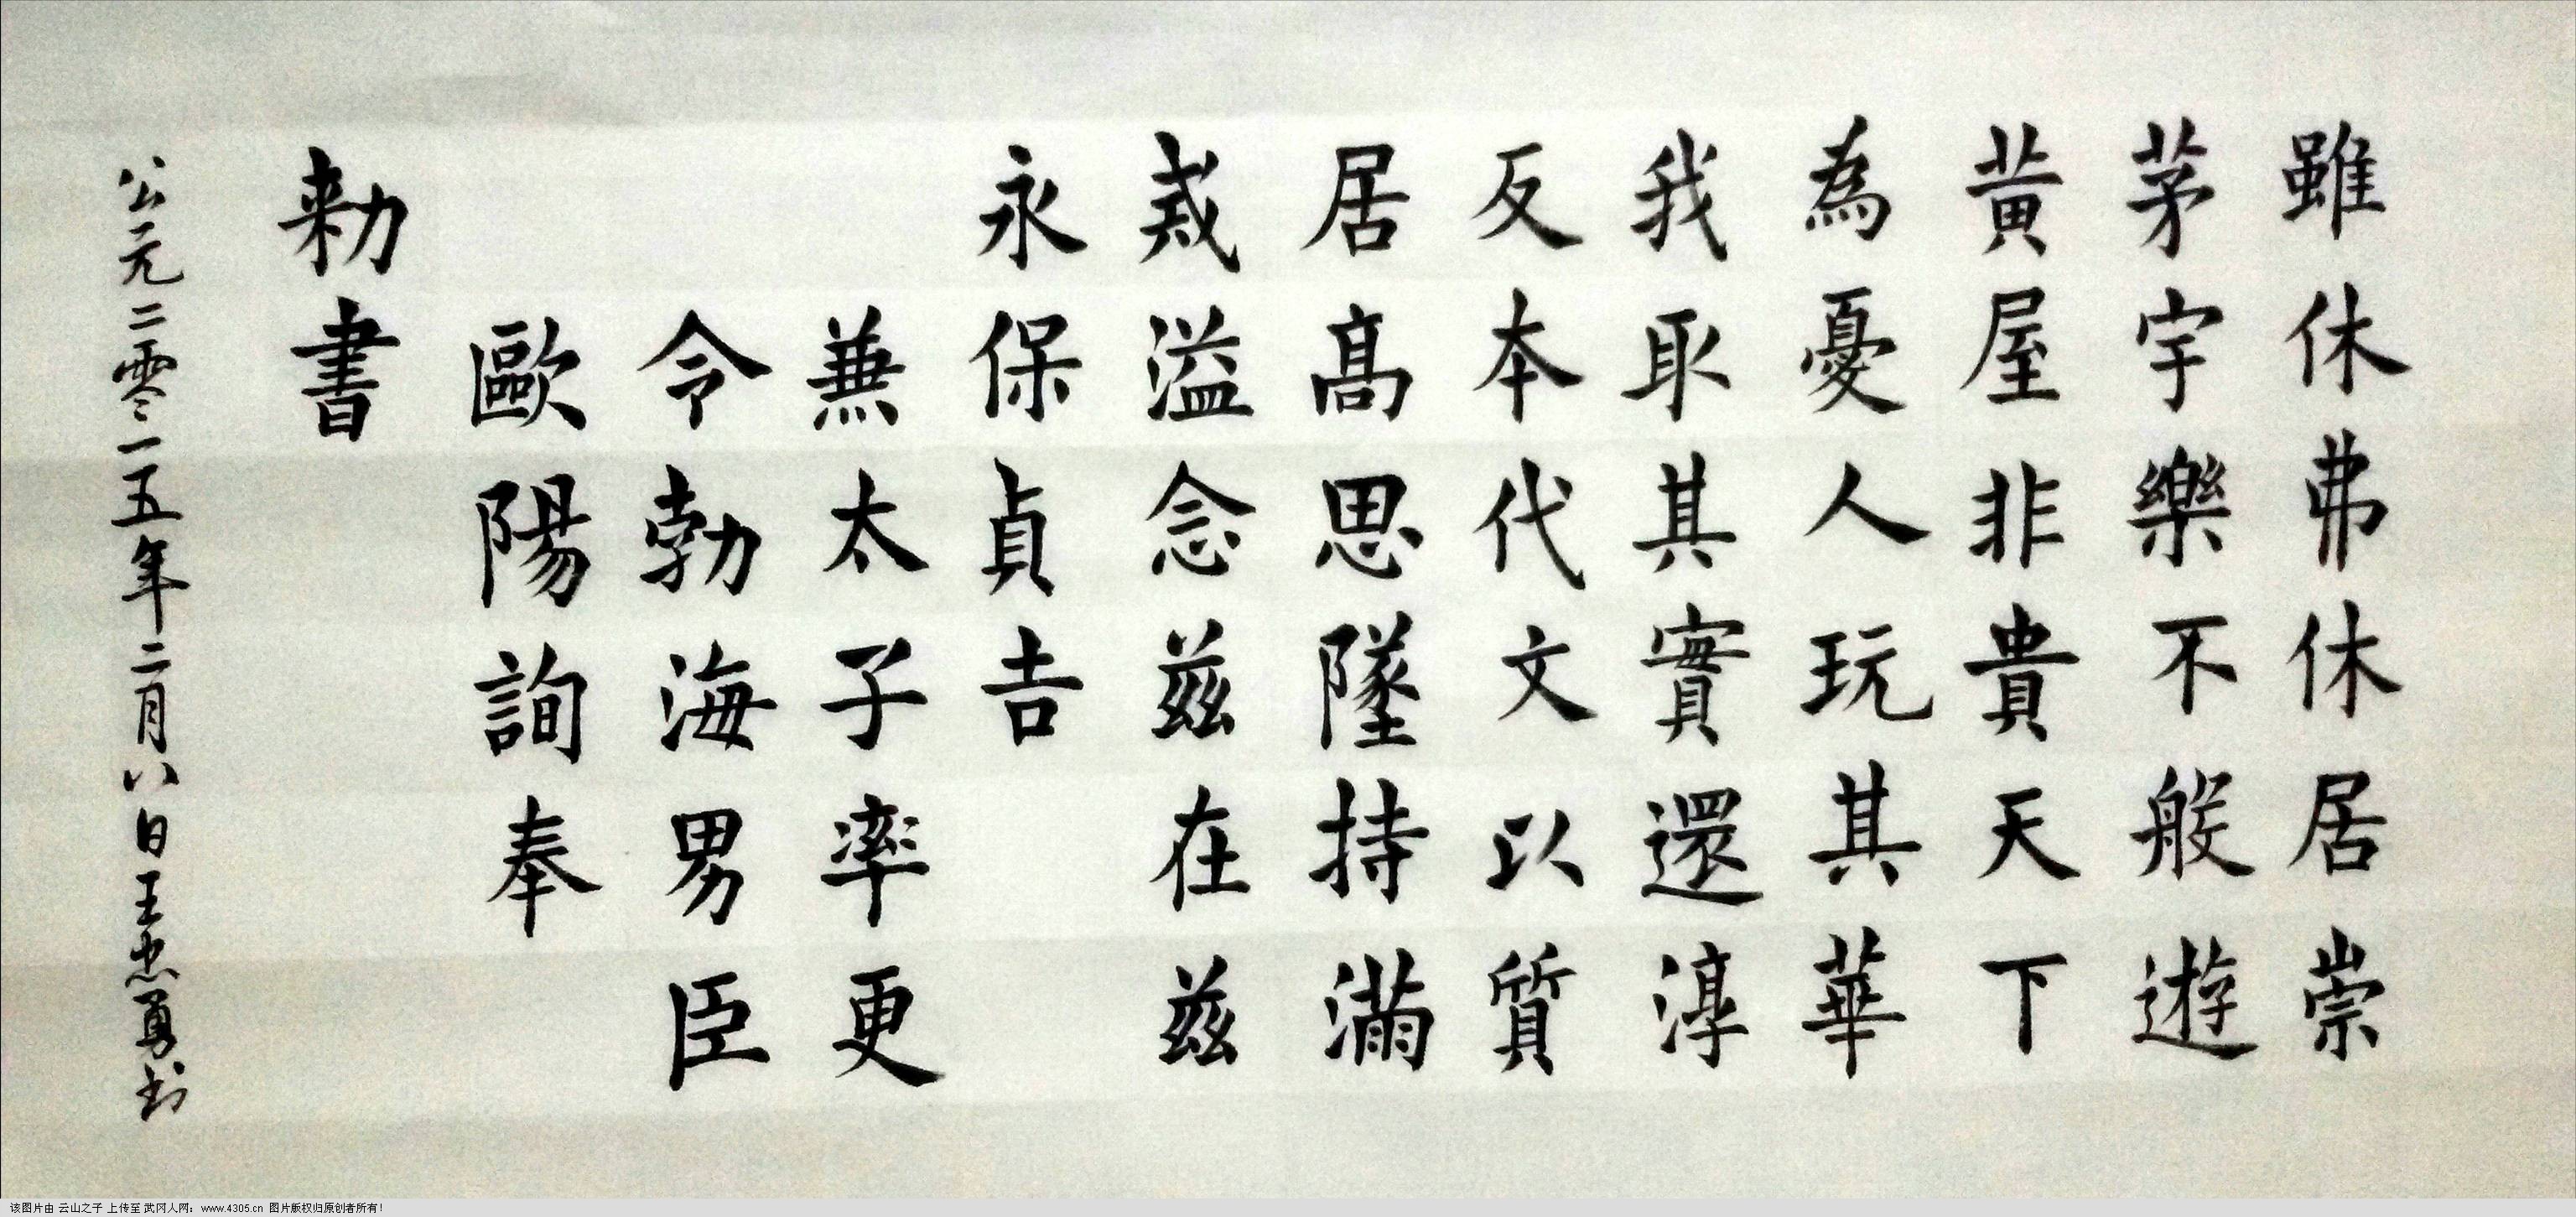 雖休弗休居崇
茅宇樂不般遊
黃屋非貴天下
為憂人玩其華
我取其實還淳
反本代文以質
居高思墜持滿
戒溢念兹在兹
永保貞吉
兼太子率更
令勃海男臣
歐陽詢奉
勑書
公元二零一五年二月八日王忠勇书
该图片由 云山之子 上传至 武冈人网：www.4305.cn 图片版权归原创者所有！